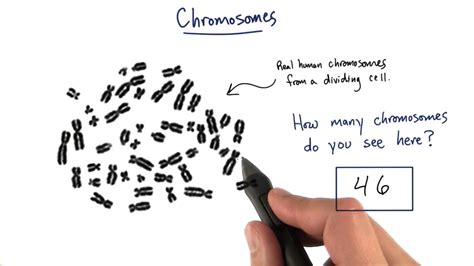 Chromosomes
Real human chromosomes
from a dividing cell.
How many chromosomes
do you see here?
46